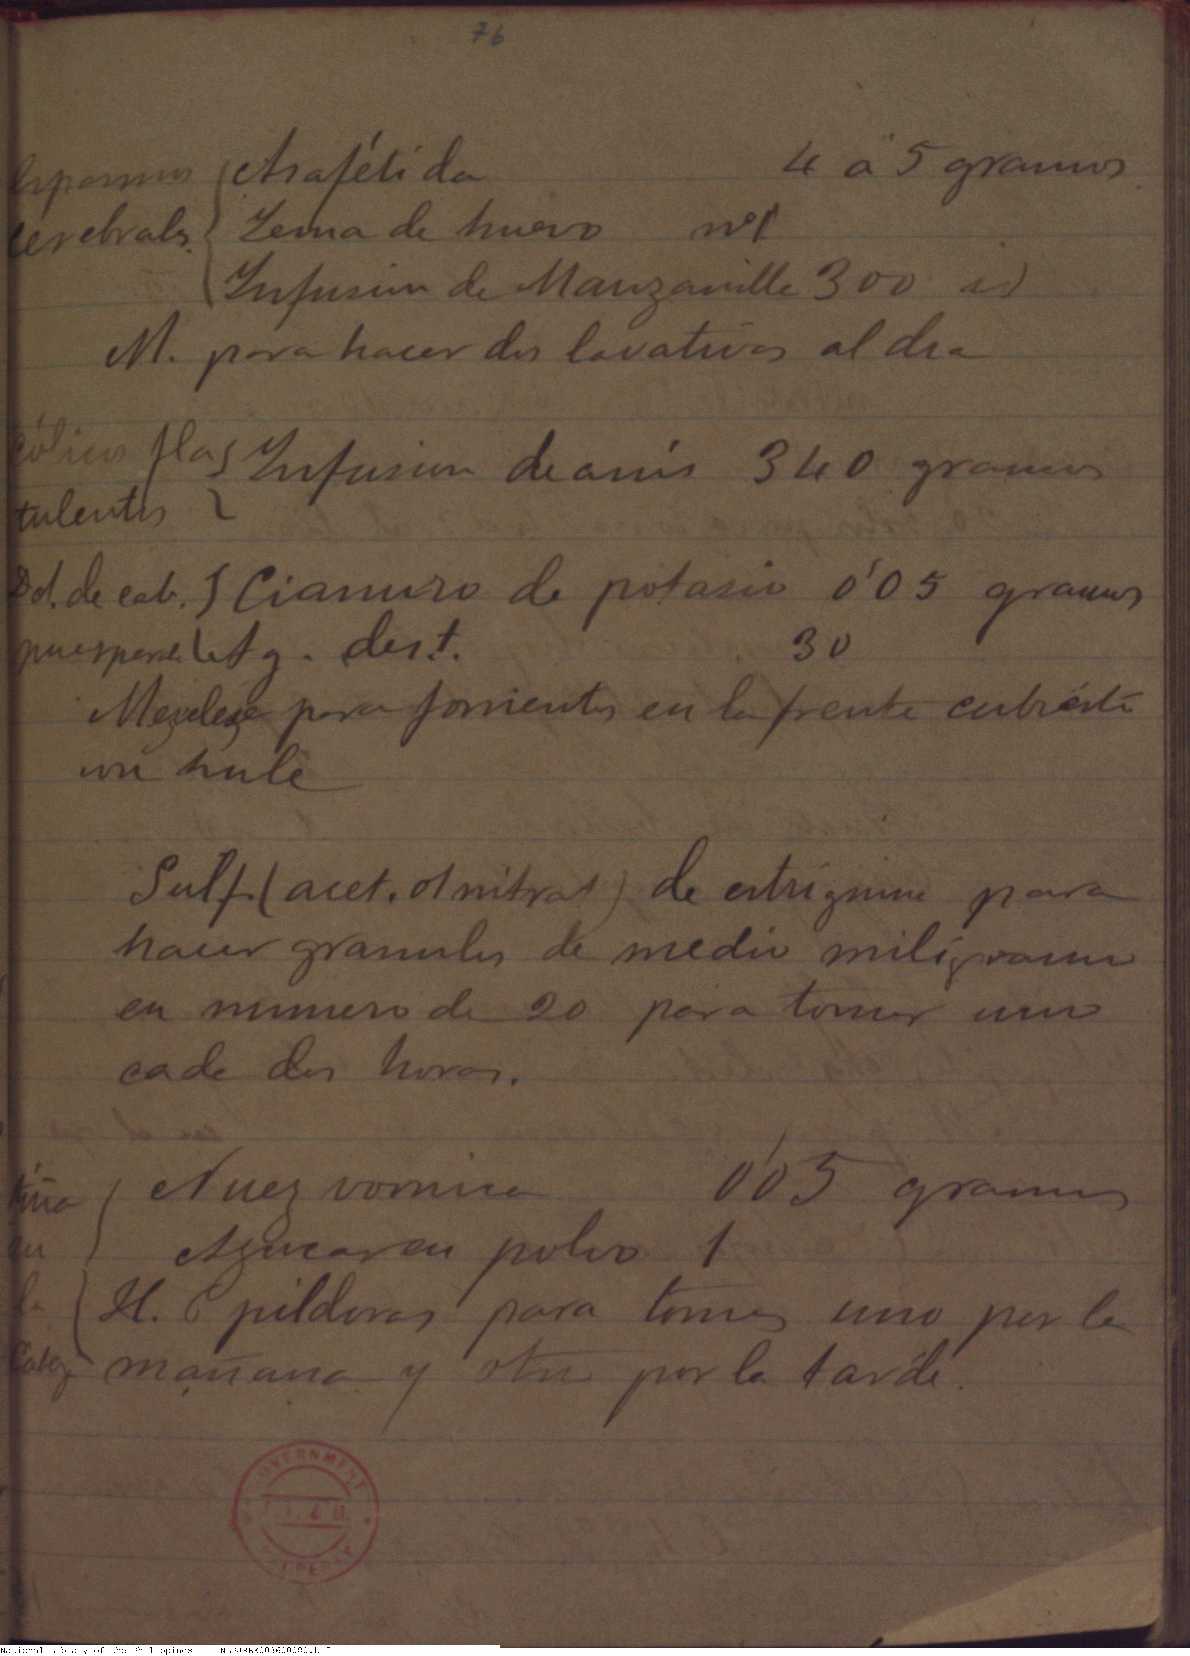 76
Espasmos cerebrales. { Asafétida 4 a 5 gramos
Yema de huevo nº 1
Infusion de Manzanilla 300 id
M. para hacer dos lavativas al dia
Cólicos fla- { Infusion de anis 340 gramos
tulentos
Dol. de cab. { Cianuro de potasio 0'05 gramos
puerperal. Ag. dest. 30
Mezclese para fomentos en la frente cubierta
con hule
Sulf. (acet. ol nitrat) de estrignina para
hacer granulos de medio miligramo
en numero de 20 para tomar uno
cada dos horas.
tiña } Nuez vomica 0'05 gramos
en } Azucar en polvo 1
la { H. 6 pildoras para tomar uno por la
Cabez. mañana y otra por la tarde.
GOVERNMENT
PROPERTY
National Library of the Philippines